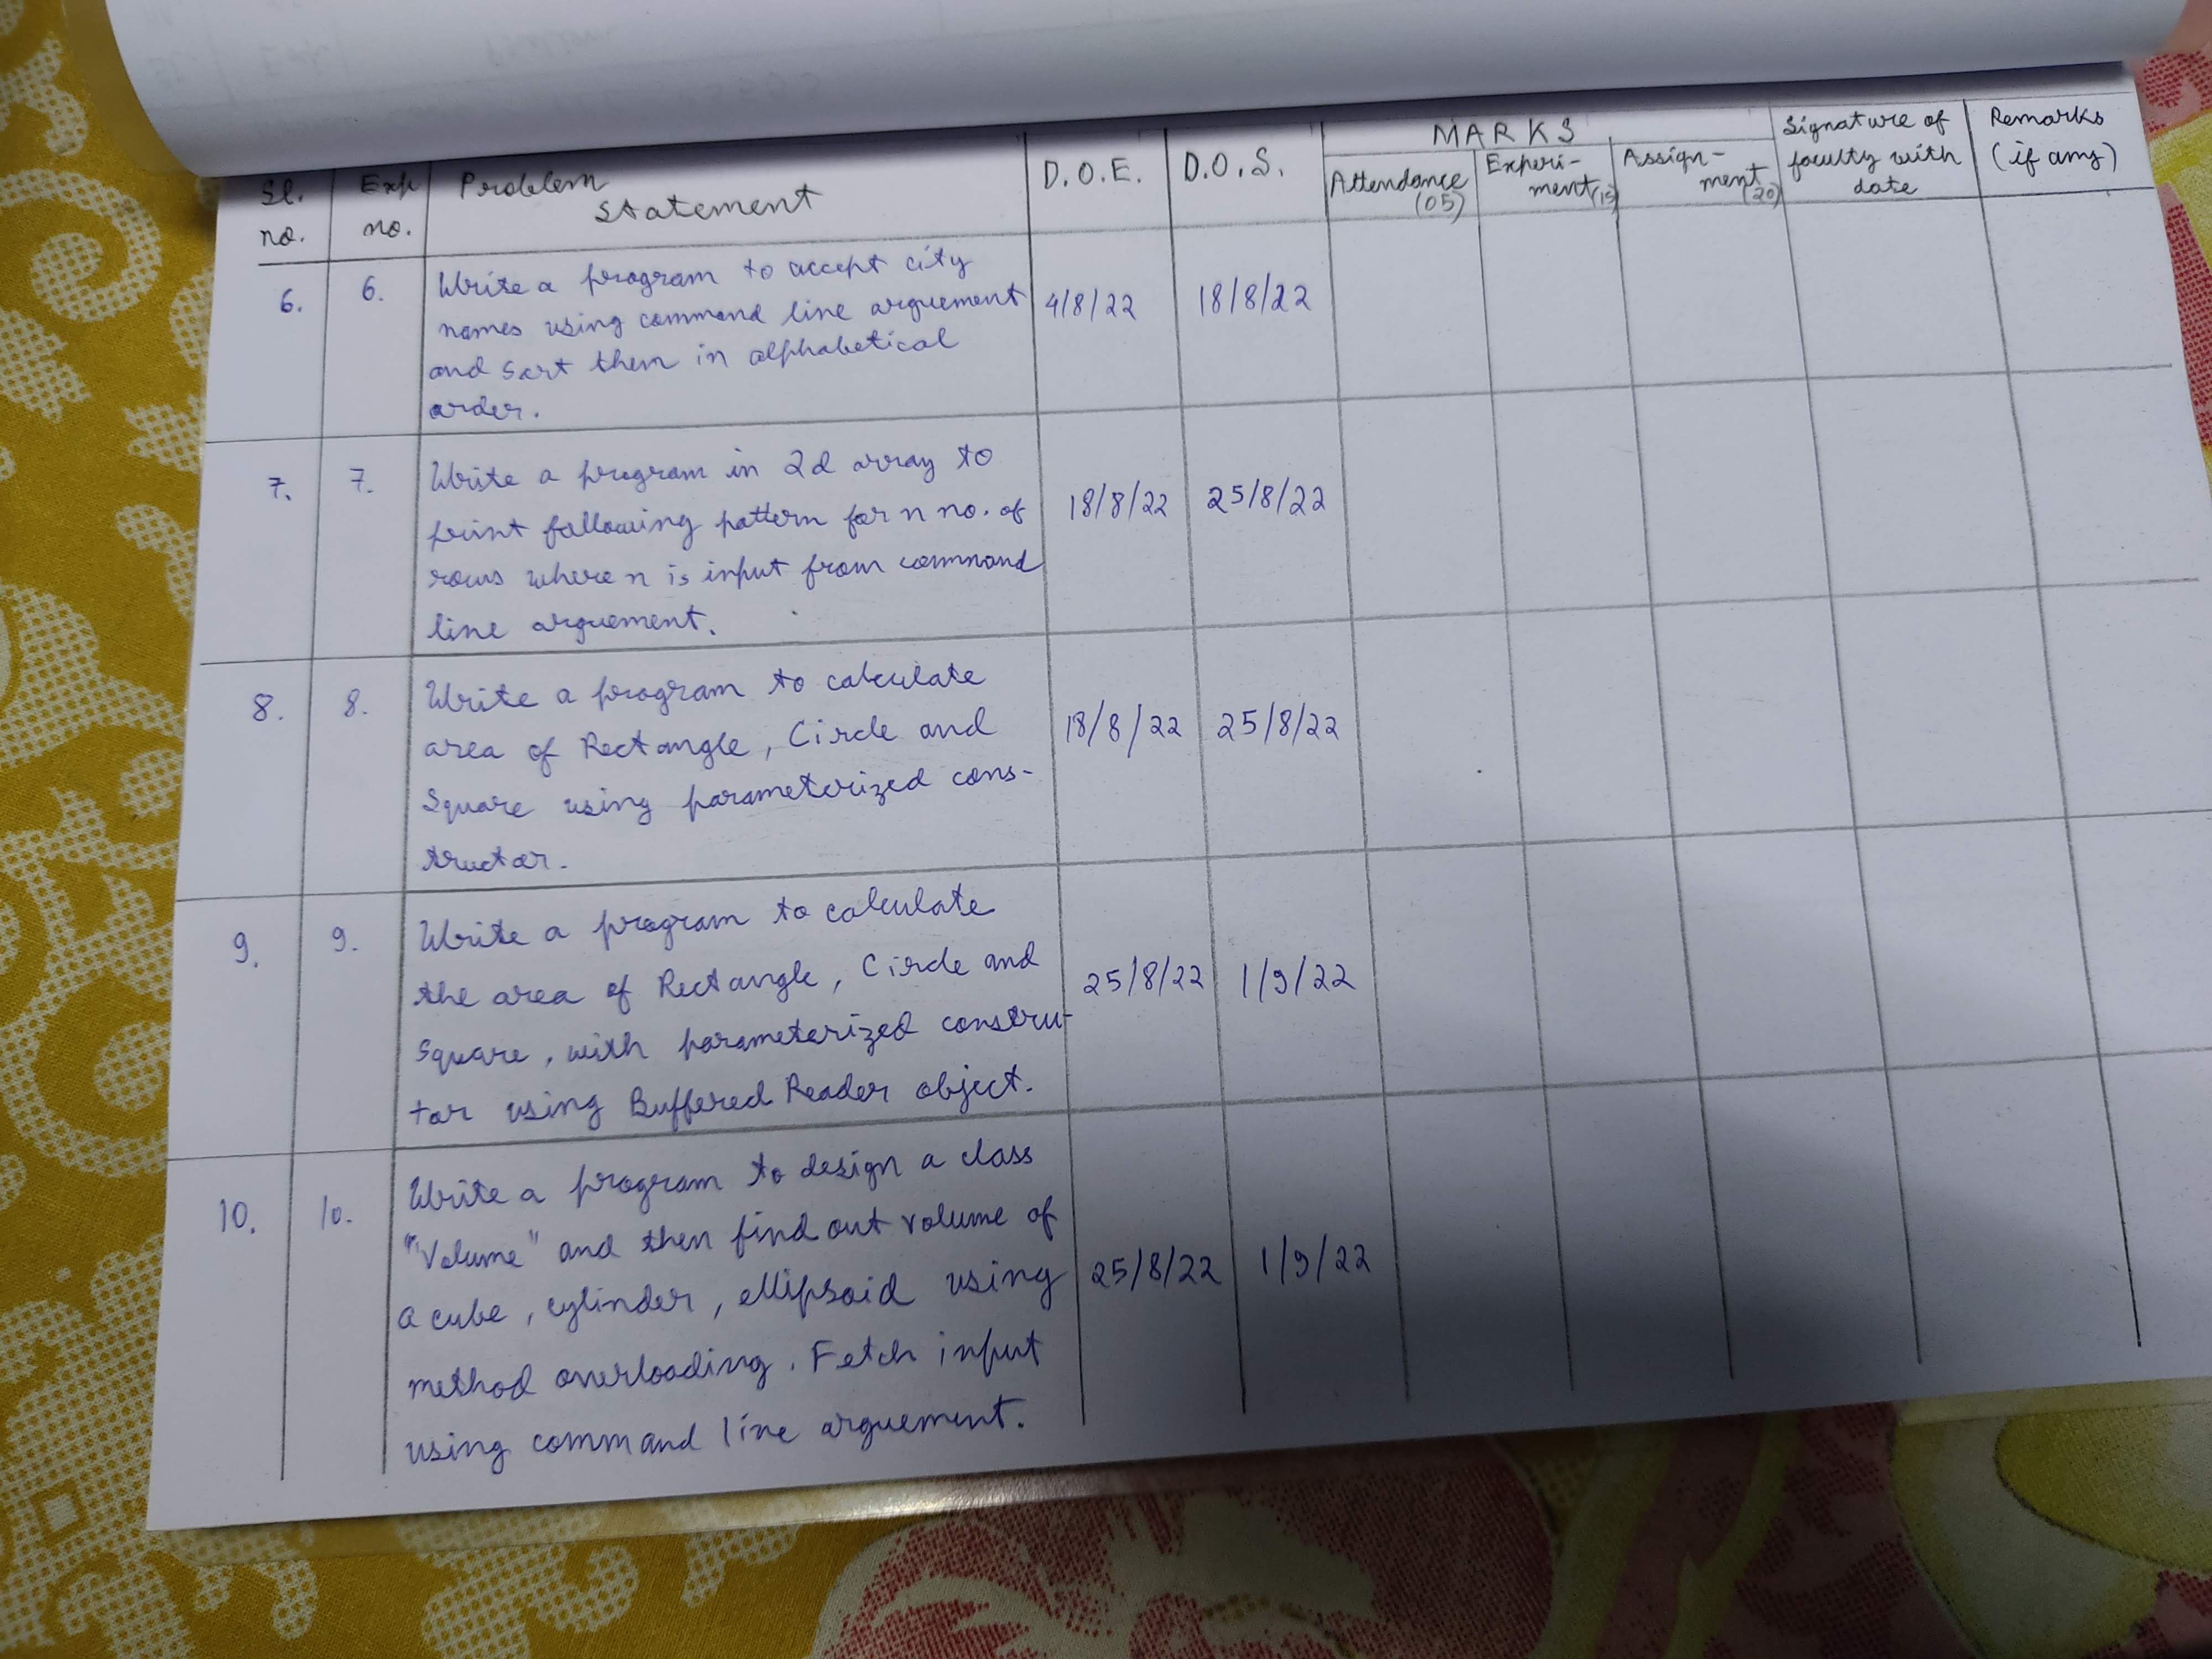 MARKS
Sl. no.
Exp no.
Problem Statement
D.O.E.
D.O.S.
Attendance (05)
Experi-
ment (15)
Assign-
ment (20)
Signature of
faculty with
date
Remarks
(if any)
6. 6. Write a program to accept city 4/8/22 18/8/22
names using command line arguement
and sort them in alphabetical
order.
7. 7. Write a program in 2d array to 18/8/22 25/8/22
print following pattern for n no. of
rows where n is input from command
line arguement.
8. 8. Write a program to calculate 18/8/22 25/8/22
area of Rectangle, Circle and
Square using parameterized cons-
tructor.
9. 9. Write a program to calculate 25/8/22 1/9/22
the area of Rectangle, Circle and
Square, with parameterized constru-
tor using Buffered Reader object.
10. 10. Write a program to design a class 25/8/22 1/9/22
"Volume" and then find out volume of
a cube, cylinder, ellipsoid using
method overloading. Fetch input
using command line arguement.